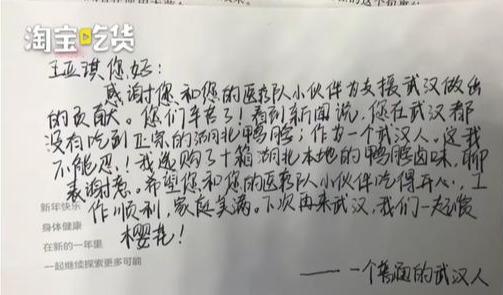 淘宝吃货
王亚琪您好:
感谢您和您的医疗队小伙伴为支援武汉做出
的贡献。您们辛苦了!看到新闻说,您在武汉都
没有吃到正宗的湖北鸭脖;作为一个武汉人,这我
不能忍!我选购了十箱湖北本地的鸭脖卤味,聊
表谢意。希望您和您的医疗队小伙伴吃得开心,工
作顺利,家庭美满。下次再来武汉,我们一起赏
樱花!
新年快乐
身体健康
在新的一年里
一起继续探索更多可能
——一个普通的武汉人